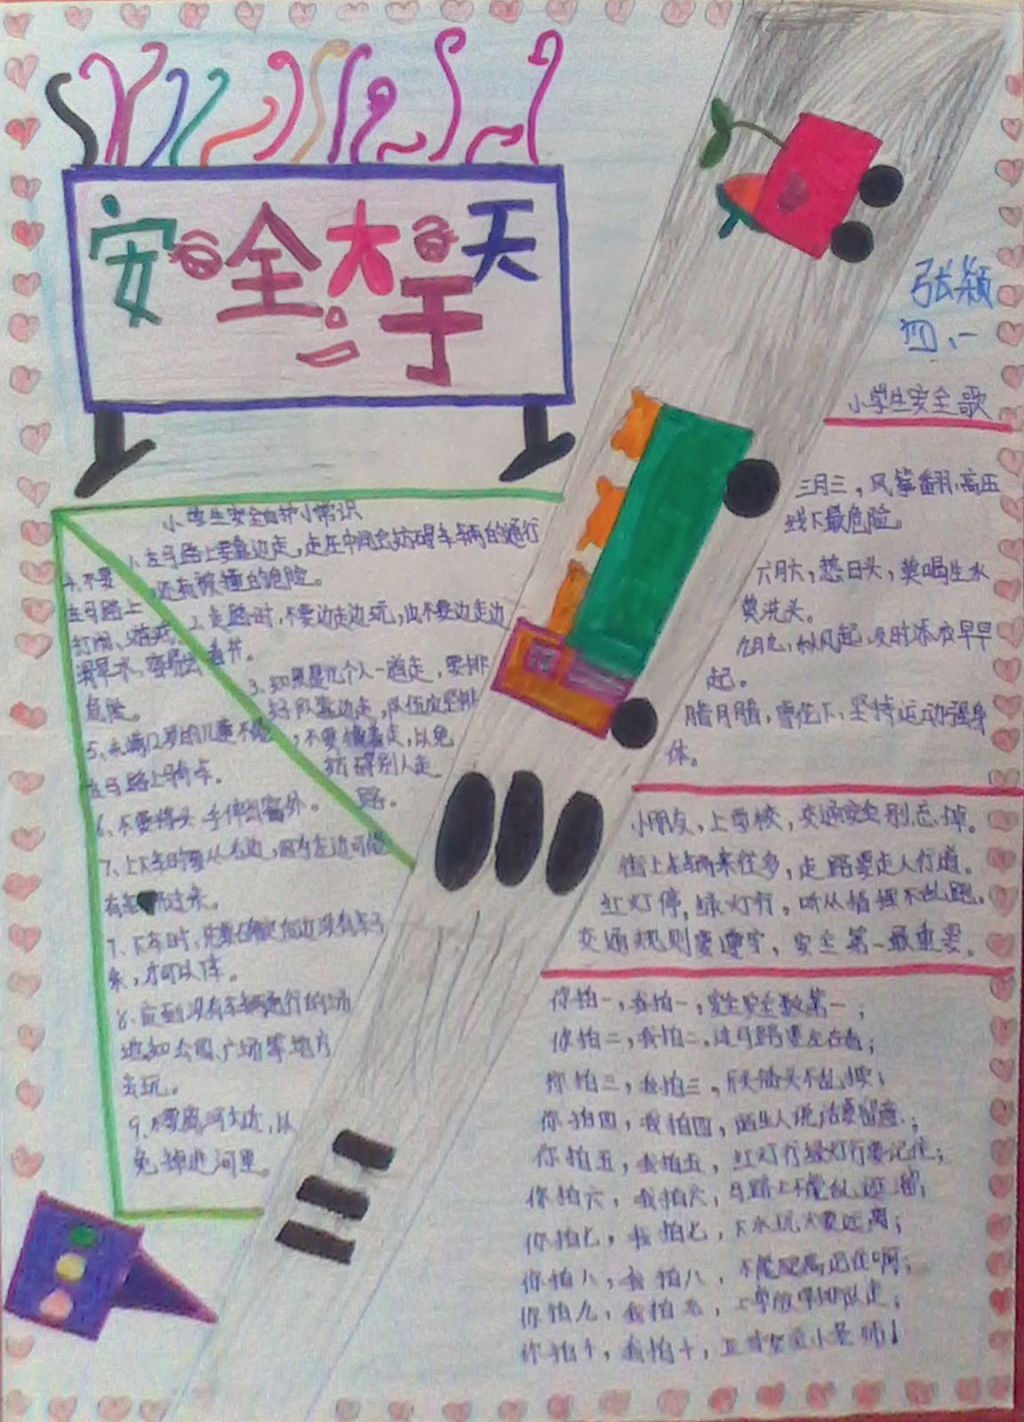 安全大于天
张颖
四、一
小学生安全歌
三月三，风筝翻，高压
线下最危险。
六月六，热日头，莫喝生水
莫洗头。
九月九，秋风起，及时添衣早早
起。
腊月腊，雪花下，坚持运动强身
体。
小朋友，上学校，交通安全别忘掉。
街上车辆来往多，走路要走人行道。
红灯停，绿灯行。听从指挥不乱跑。
交通规则要遵守，安全第一最重要。
你拍一，我拍一，安全第一；
你拍二，我拍二，过马路要左右看；
你拍三，我拍三，
你拍四，我拍四，陌生人说话要留意；
你拍五，我拍五，红灯行绿灯行要记住；
你拍六，我拍六，马路上不能乱逗溜；
你拍七，我拍七，
你拍八，我拍八，
你拍九，我拍九，
你拍十，我拍十，安全小老师！
小学生安全自护小常识
1.在马路上要靠边走，走在中间会妨碍车辆的通行
还有被撞的危险。
2.走路时，不要边走边玩，也不要边走边
看书。
3.如果是几个人一道走，要排
好队靠边走，队伍应竖排
，不要横着走，以免
妨碍别人走
路。
4.不要
在马路上
打闹、游戏
危险。
5.未满12岁的儿童不能
在马路上骑车。
6.不要将头、手伸出窗外。
7.上下车时要从右边，因为左边可能
有车开过来。
7.下车时，只要确定右边没有车子
来，才可以下。
8.应到没有车辆通行的场
地，如公园、广场等地方
去玩。
9.不要离河太近，以
免掉进河里。